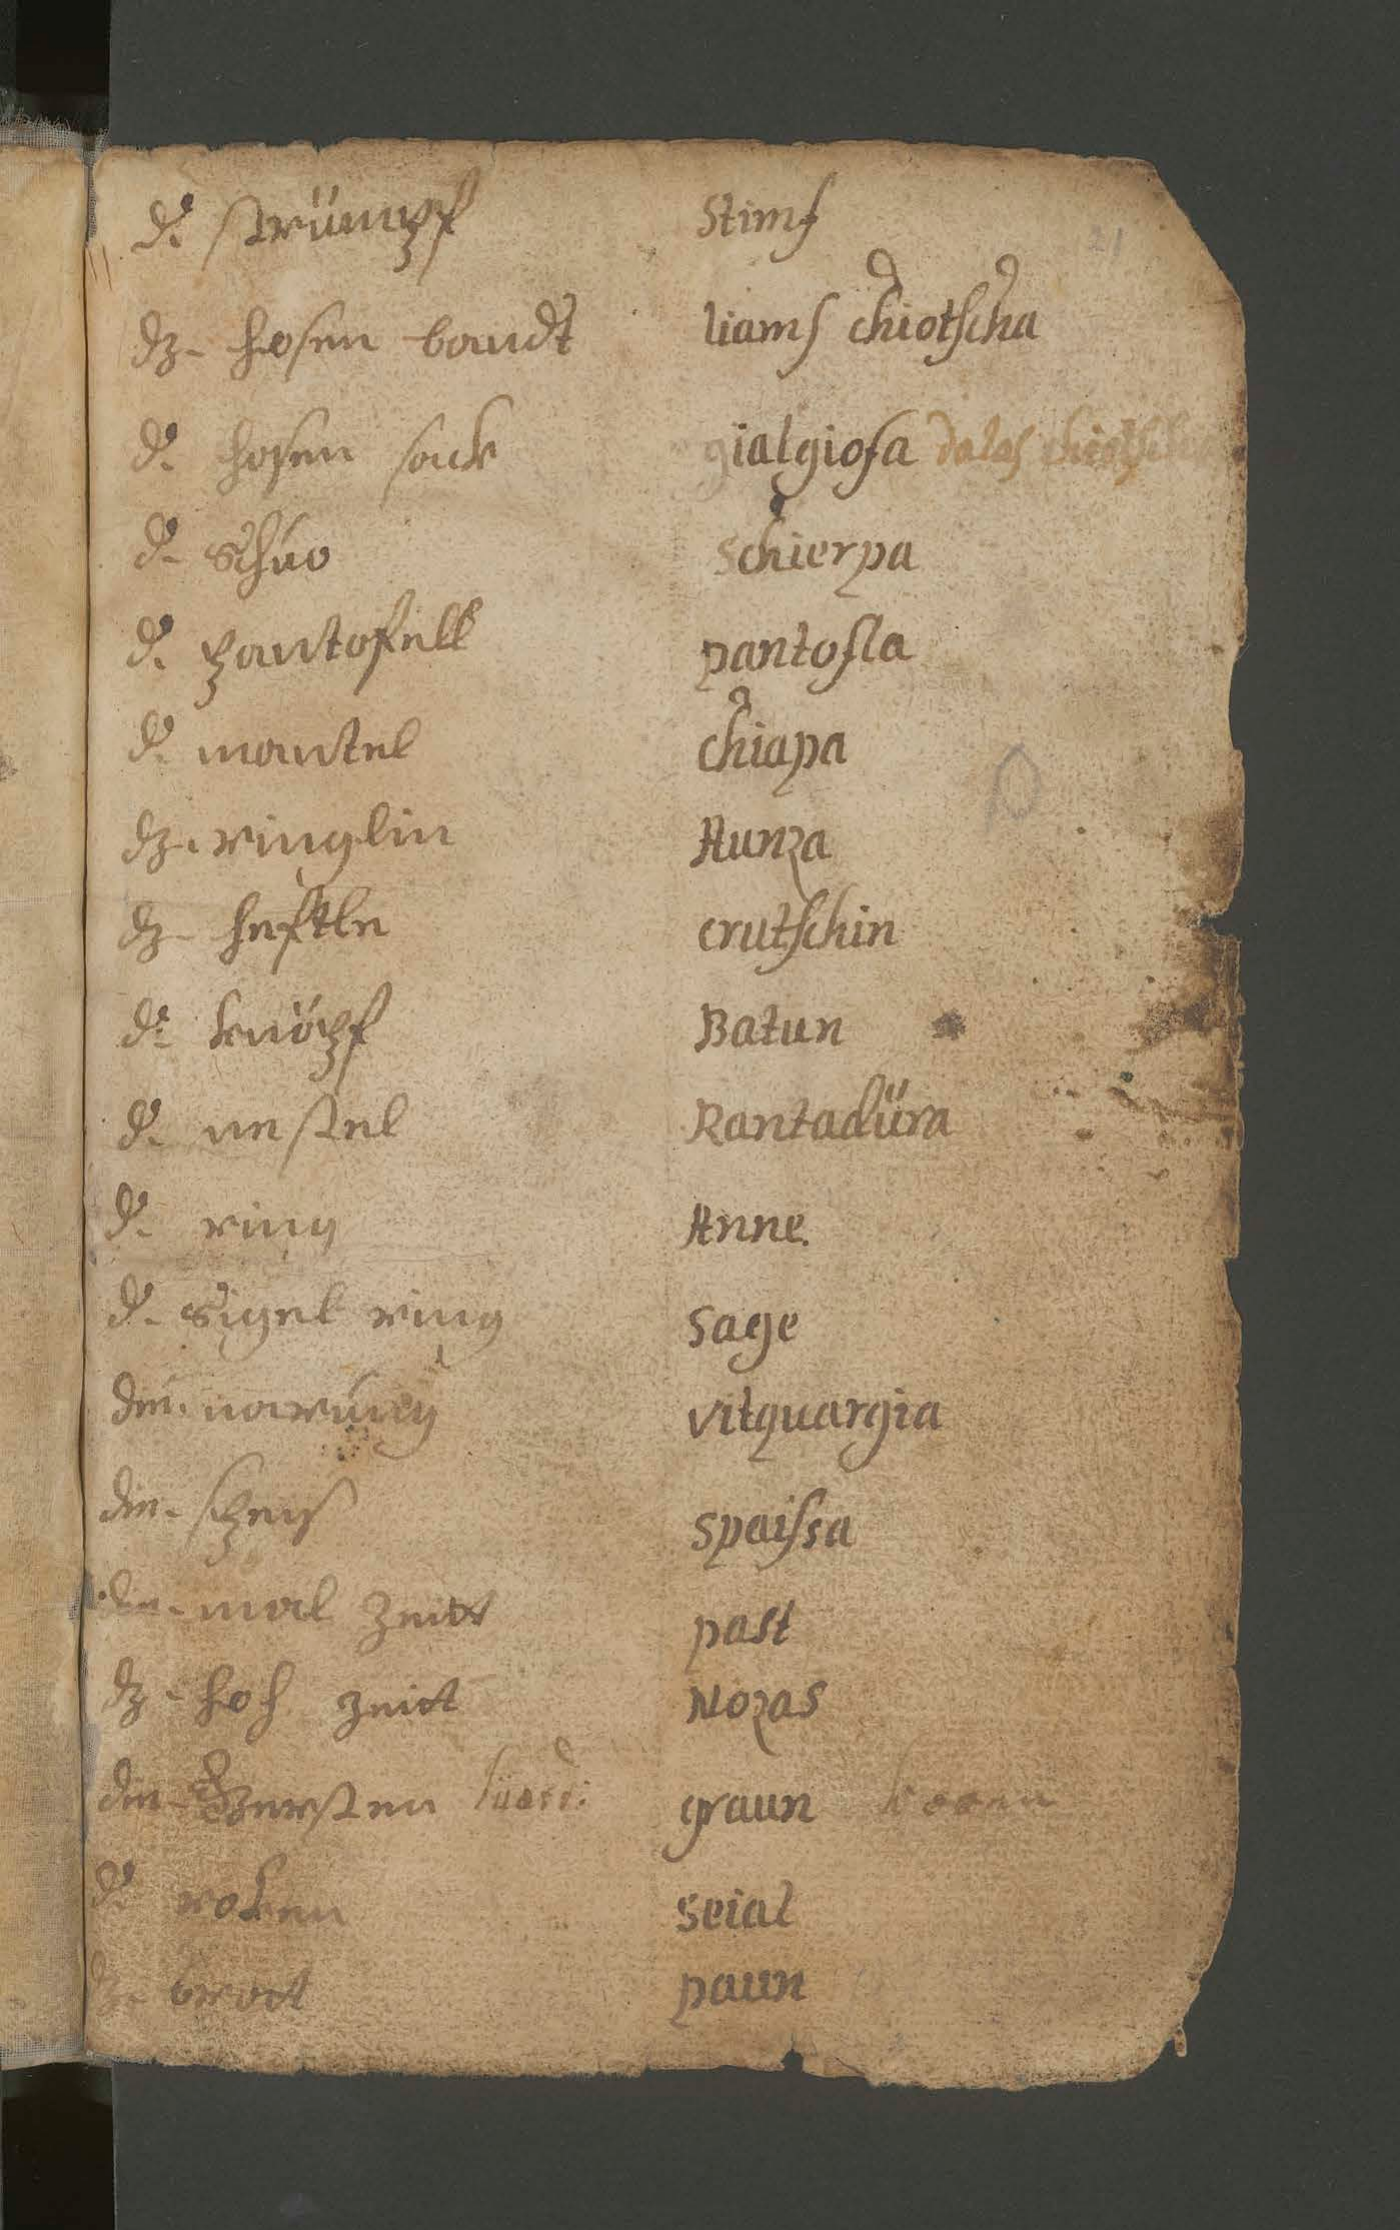 21
d. strümpf stimf
dz. hosen bandt liamf chiotscha
d. hosen sack gialgiofa dalas chiotscha
d. Schúo schierpa
d. pantofell pantofla
d. mantel chiapa
dz. ringlin Aunza
dz. heftle crutschin
d. knöpf Batun
d. nestel Rantadüra
d. ring Anne.
d. Sigel ring sage
die. narúng vitquargia
die. speis spaissa
die. mal zeitt past
dz. hoh zeitt Nozas
die. gersten graun
d. roken seial
dz. brott paun